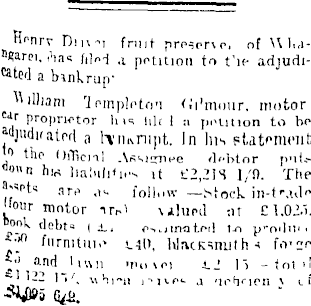 Henry Driver fruit preserver of Wha-
ngarei, has filed a petition to the adjudi-
cated a bankrup
William Templeton Gilmour, motor
car proprietor has filed a petition to be
adjudicated a bankrupt. In his statement
to the Official Assignee debtor puts
down his liabilities at £2,218 1/9. The
assets are as follow —Stock in-trade
(four motor cars) valued at £1,025.
book debts estimated to produce
£50 furniture £40, blacksmith's forge
£5 and lawn mower £2 15 —total
£1122 15/, which leaves a deficiency of
£1,095 6/9.